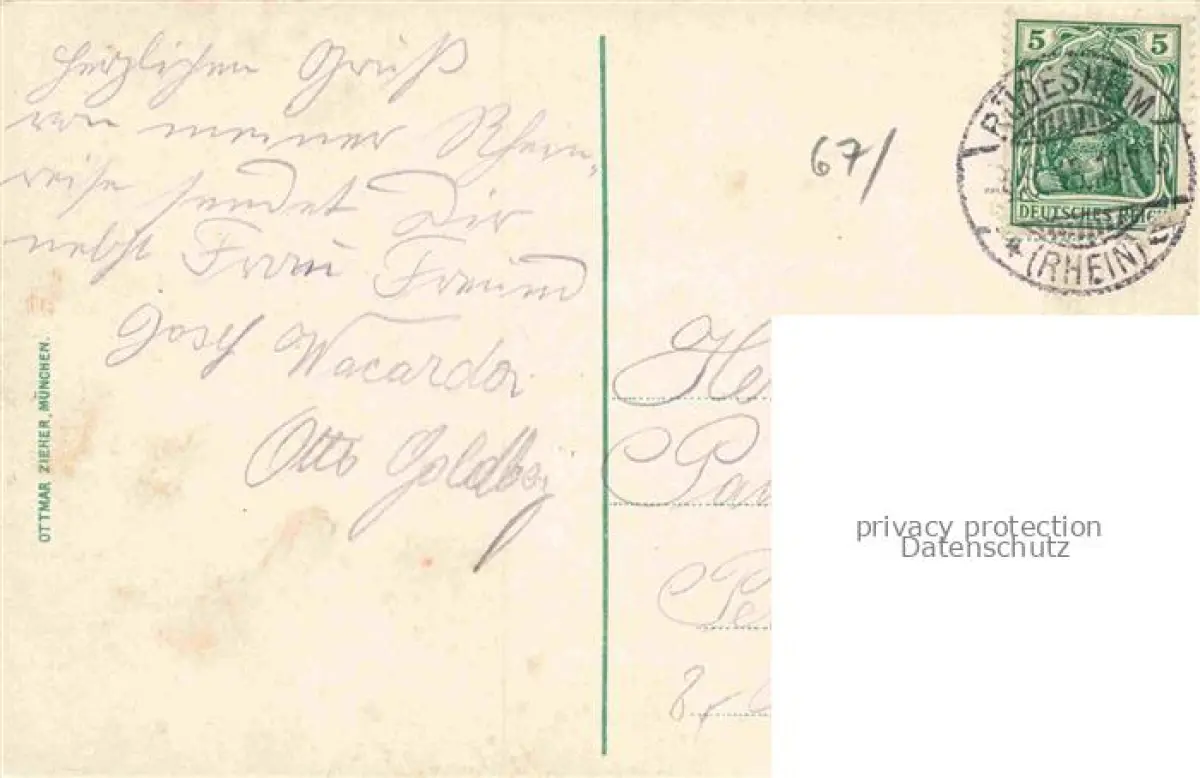 Herzlichen Gruß
von meiner Rhein-
reise sendet Dir
nebst Frau Freund
Josef
Otto
OTTMAR ZIEHER, MÜNCHEN.
67/
5 5
DEUTSCHES REICH
RÜDESHEIM
* (RHEIN)
He
Pau
Pe
privacy protection
Datenschutz